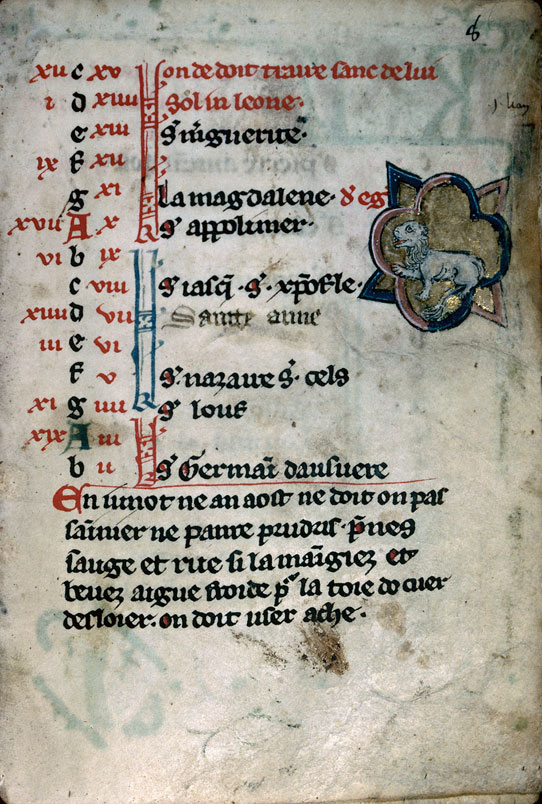 8
xii c xv on ne doit traire sanc de lui
i d xiiii Sol in leone.
e xiii S
k xii
ix g xi La magdalene.
xvii A x S appolimer.
vi b ix
c viii S iasq. S. xpofle.
xiiii d vii Sainte anne
iii e vi
k v S. nazare S. cels
xi g iiii S louk
xix A iii
b ii S Germain dausuere
En iunot ne an aost ne doit on pas
sainnier ne panre
sauge et rue si la maingiez et
bevez aigue froide por la toie do cuer
desloier. on doit user ache.